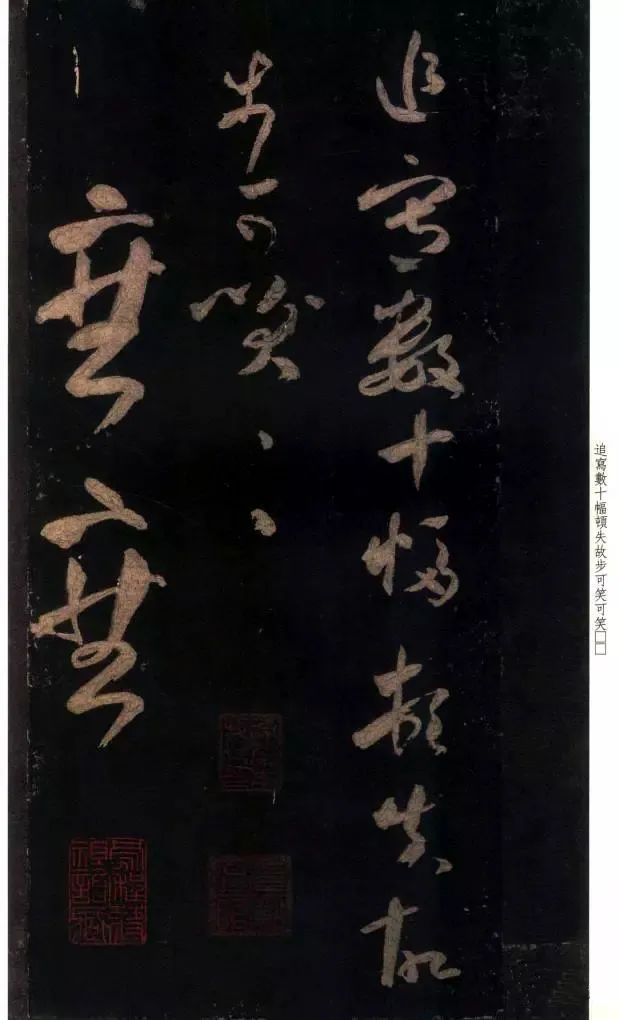 追寫數十幅頓失故
步可笑〻
追寫數十幅頓失故步可笑可笑□□